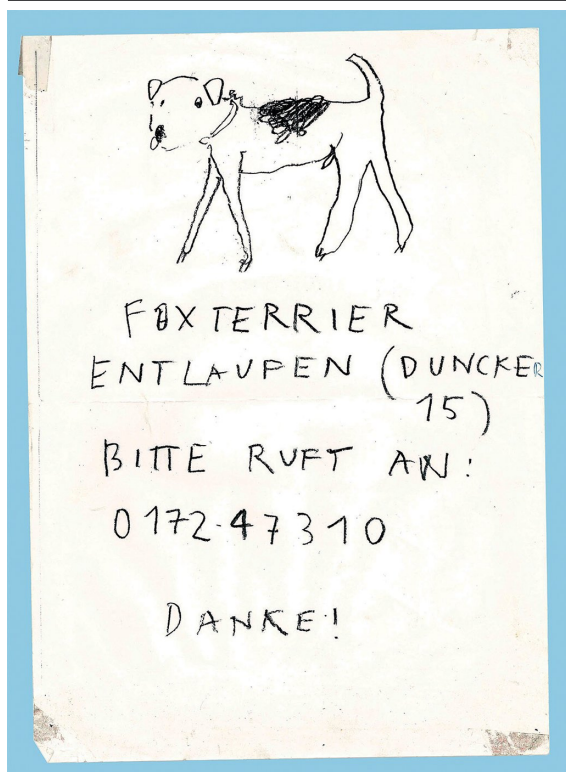 FOXTERRIER
ENTLAUFEN (DUNCKER
15)
BITTE RUFT AN:
0172-47310
DANKE!